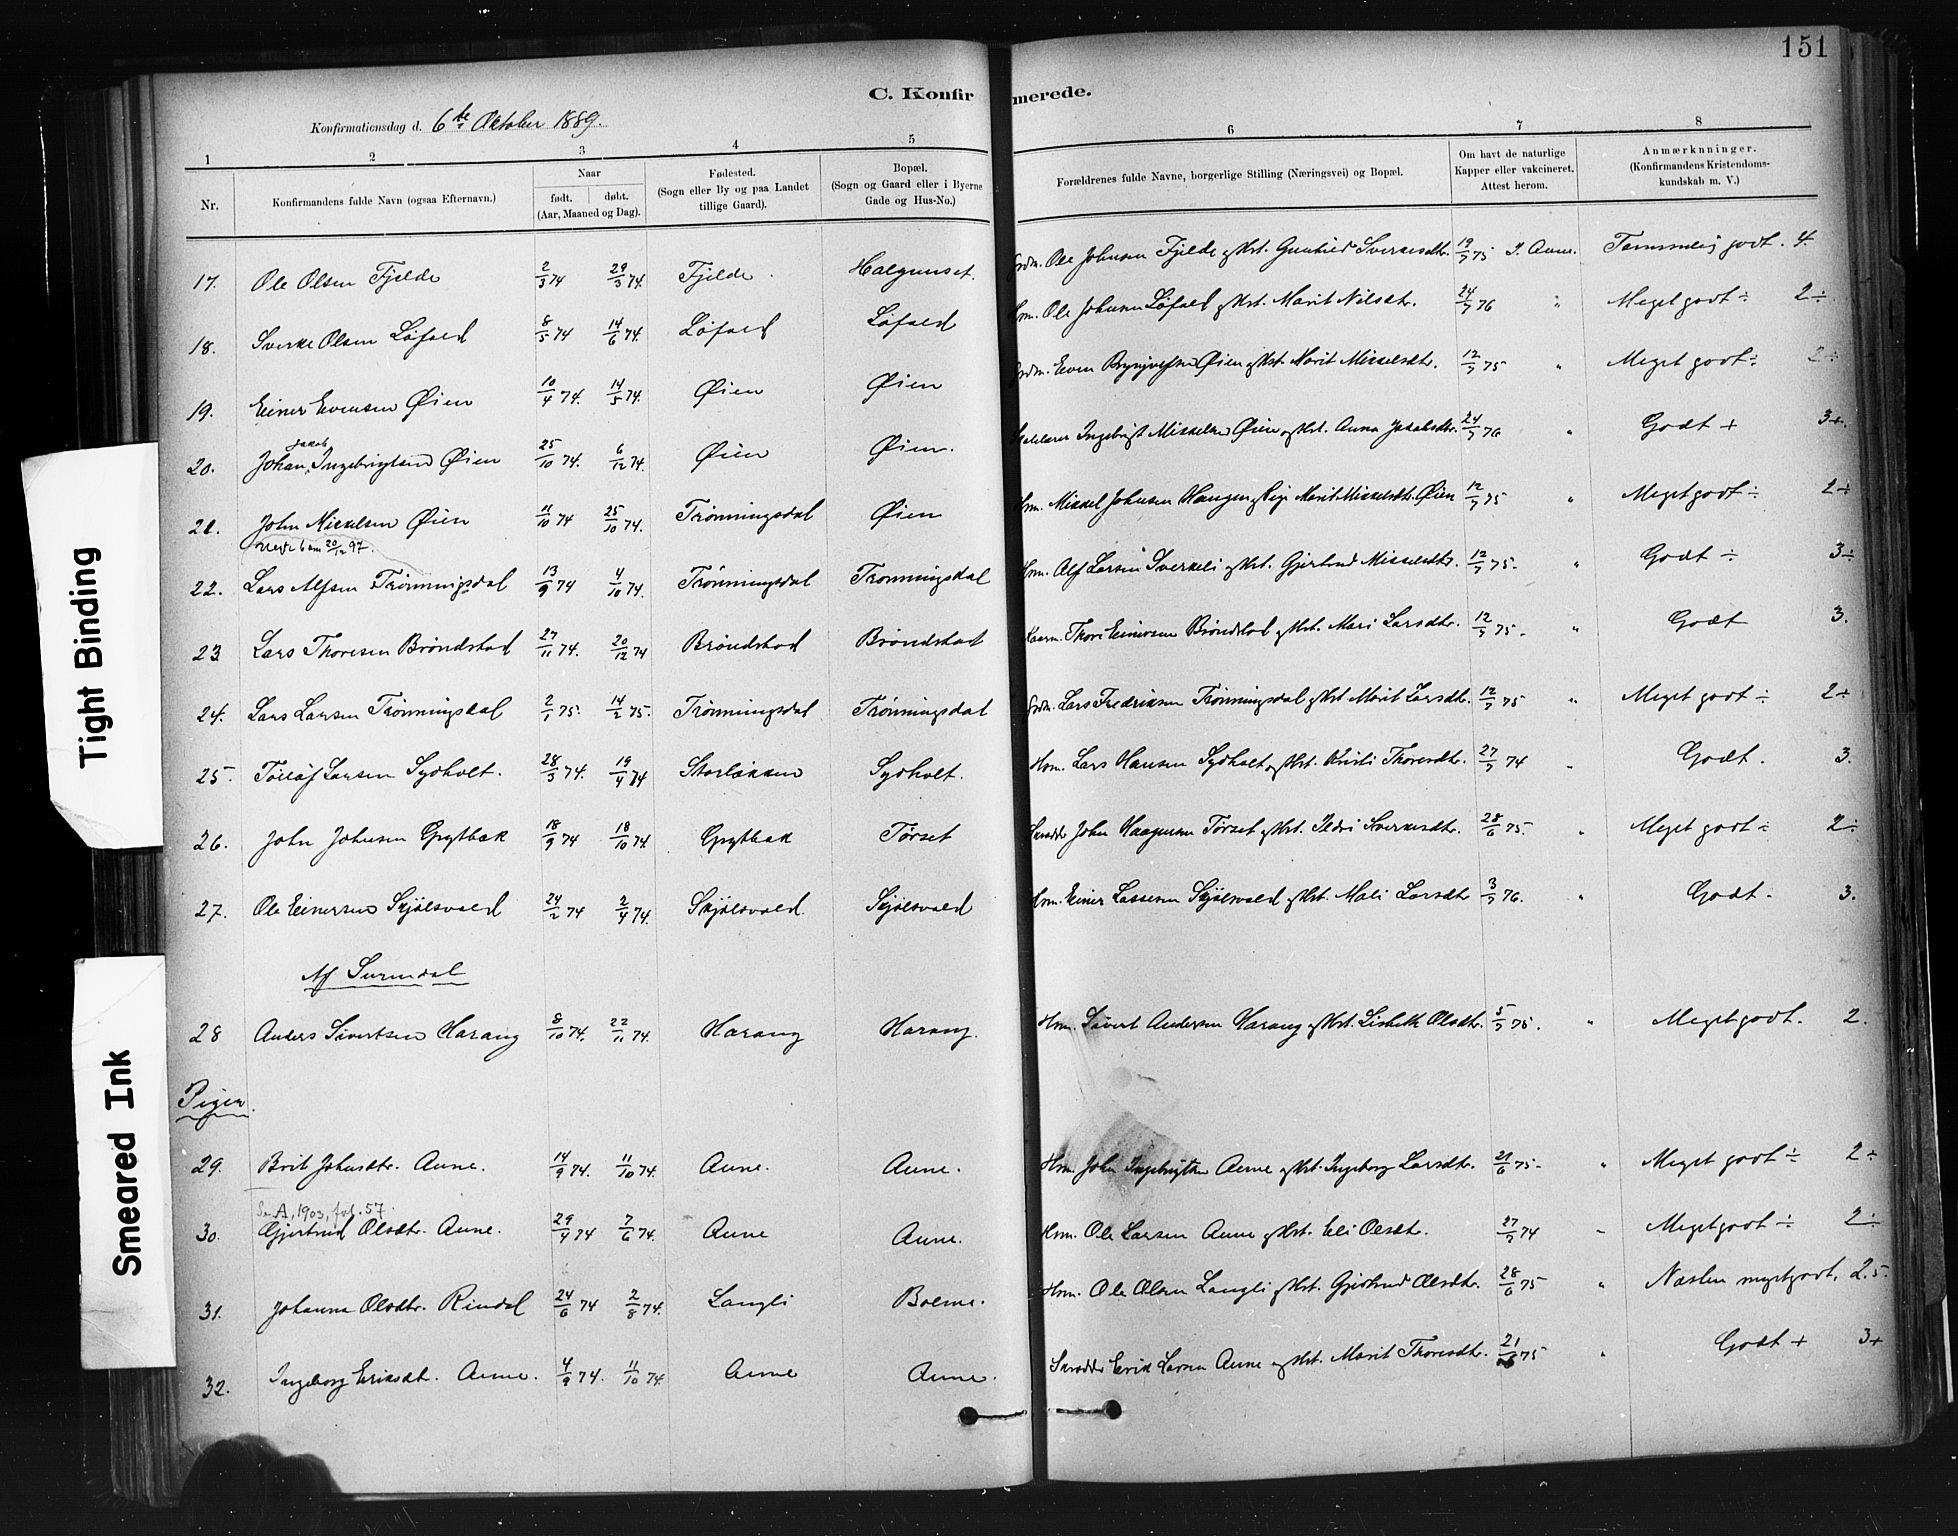 151
C. Konfirmerede.
Konfirmationsdag d. 6te Oktober 1889.
1 2 3 4 5 6 7 8
Nr. Konfirmandens fulde Navn (ogsaa Efternavn.) Naar født. døbt. (Aar, Maaned og Dag). Fødested. (Sogn eller By og paa Landet tillige Gaard). Bopæl. (Sogn og Gaard eller i Byerne Gade og Hus-No.) Forældrenes fulde Navne, borgerlige Stilling (Næringsvei) og Bopæl. Om havt de naturlige Kapper eller vakcineret. Attest herom. Anmærkninger. (Konfirmandens Kristendomskundskab m. V.)
17. Ole Olsen Fjelde 2/3 74 29/3 74. Fjelde. Halgunset. Grdm. Ole Johnsen Fjelde og Kst. Gunhild Sverkesdtr. 19/7 75 I. Aune. Temmelig godt. 4.
18. Sverke Olsen Løfald 8/5 74 14/6 74. Løfald Løfald Hm. Ole Johnsen Løfald og Kst. Marit Nilsdtr. 24/7 76 " Meget godt ÷ 2÷
19. Einer Evensen Øien 10/4 74. 14/5 74. Øien Øien Grdm. Even Brynjulfsen Øien og Kst. Marit Mikkelsdtr. 12/7 75 " Meget godt ÷ 2÷
20. Johan Jakob Ingebrigtsen Øien 25/10 74. 6/12 74. Øien Øien. Ingebrigt Mikkelsen Øien og Kst. Anna Jakobsdtr. 24/7 76 " Godt + 3+.
21. John Mikkelsen Øien 11/10 74 25/10 74. Trønningsdal Øien Hm. Mikkel Johnsen Haugen og Pige Marit Mikkelsdtr. Øien 12/7 75 " Meget godt ÷ 2÷
20/12 97.
22. Lars Alfsen Trønningsdal 13/9 74 4/10 74. Trønningsdal Trønningsdal Hm. Alf Larsen Sverkeli og Kst. Gjertrud Mikkelsdtr. 12/7 75. " Godt ÷ 3÷
23 Lars Thoresen Brøndstad 27/11 74. 20/12 74 Brøndstad Brøndstad Kaarm. Thore Einersen Brøndstad og Kst. Mari Larsdtr. 12/7 75. " Godt 3.
24. Lars Larsen Trønningsdal 2/1 75. 14/2 75. Trønningsdal Trønningsdal Grdm. Lars Fredriksen Trønningsdal og Kst. Marit Larsdtr. 12/7 75 " Meget godt ÷ 2÷
25. Tollof Larsen Sydholt. 28/3 74. 19/4 74 Storløkken Sydholt. Hm. Lars Hansen Sydholt og Kst. Kristi Thoresdtr. 27/7 74 " Godt. 3.
26. John Johnsen Grytbak 18/9 74 18/10 74. Grytbak Tørset Skrædder John Haagensen Tørset og Kst. Ildri Sverkesdtr. 28/6 75. " Meget godt ÷ 2÷
27. Ole Einersen Skjølsvold 24/2 74 2/4 74. Skjølsvold. Skjølsvold Hm. Einer Lassesen Skjølsvold og Kst. Mali Larsdtr 3/7 76. " Godt. 3.
Af Surendal
28 Anders Sivertsen Harang 8/10 74. 22/11 74. Harang Harang. Hm. Sivert Andersen Harang og Kst. Lisbeth Olsdtr. 5/7 75. " Meget godt. 2.
Piger.
29. Brit Johnsdtr. Aune. 14/9 74. 11/10 74. Aune. Aune. Hm. John Ingebrigtsen Aune og Kst. Ingeborg Larsdtr. 21/6 75. " Meget godt ÷ 2÷
Se A, 1903, fol. 57.
30. Gjertrud Olsdtr. Aune. 29/4 74 7/6 74. Aune Aune. Hm. Ole Larsen Aune og Kst. Eli Olsdtr. 27/7 74 " Meget godt ÷ 2÷
31. Johanna Olsdtr. Rindal 24/6 74 2/8 74. Langli Bolme. Hm. Ole Olsen Langli og Kst. Gjertrud Olsdtr. 28/6 75 " Næsten meget godt. 2.5.
32. Ingeborg Eriksdt. Aune. 4/9 74. 11/10 74. Aune Aune. Skrædder Erik Larsen Aune og Kst. Marit Thoresdtr. 21/6 75 " Godt + 3+
Tight Binding
Smeared Ink